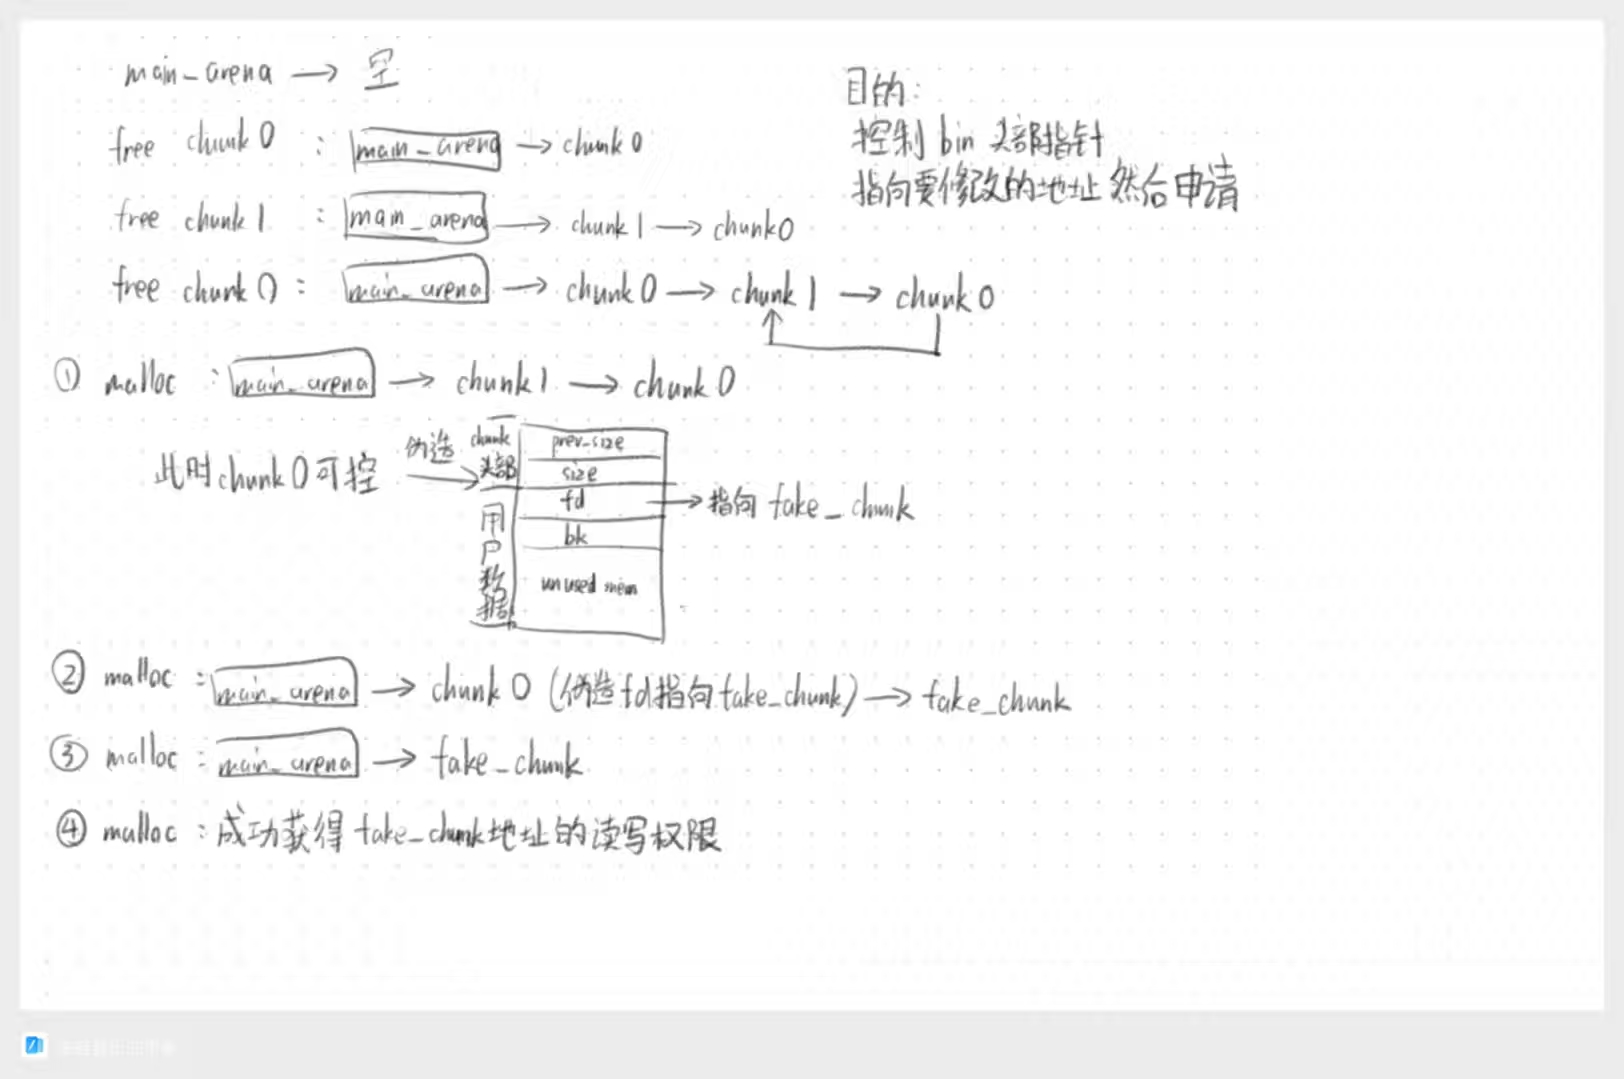 main_arena → 空
目的:
控制 bin 头部指针
指向要修改的地址 然后申请
free chunk 0 : main_arena → chunk 0
free chunk 1 : main_arena → chunk 1 → chunk 0
free chunk 0 : main_arena → chunk 0 → chunk 1 → chunk 0
① malloc : main_arena → chunk 1 → chunk 0
此时 chunk 0 可控
伪造
chunk 头部
prev_size
size
用户数据
fd → 指向 fake_chunk
bk
unused mem
② malloc : main_arena → chunk 0 (伪造fd指向fake_chunk) → fake_chunk
③ malloc : main_arena → fake_chunk
④ malloc : 成功获得 fake_chunk地址的读写权限